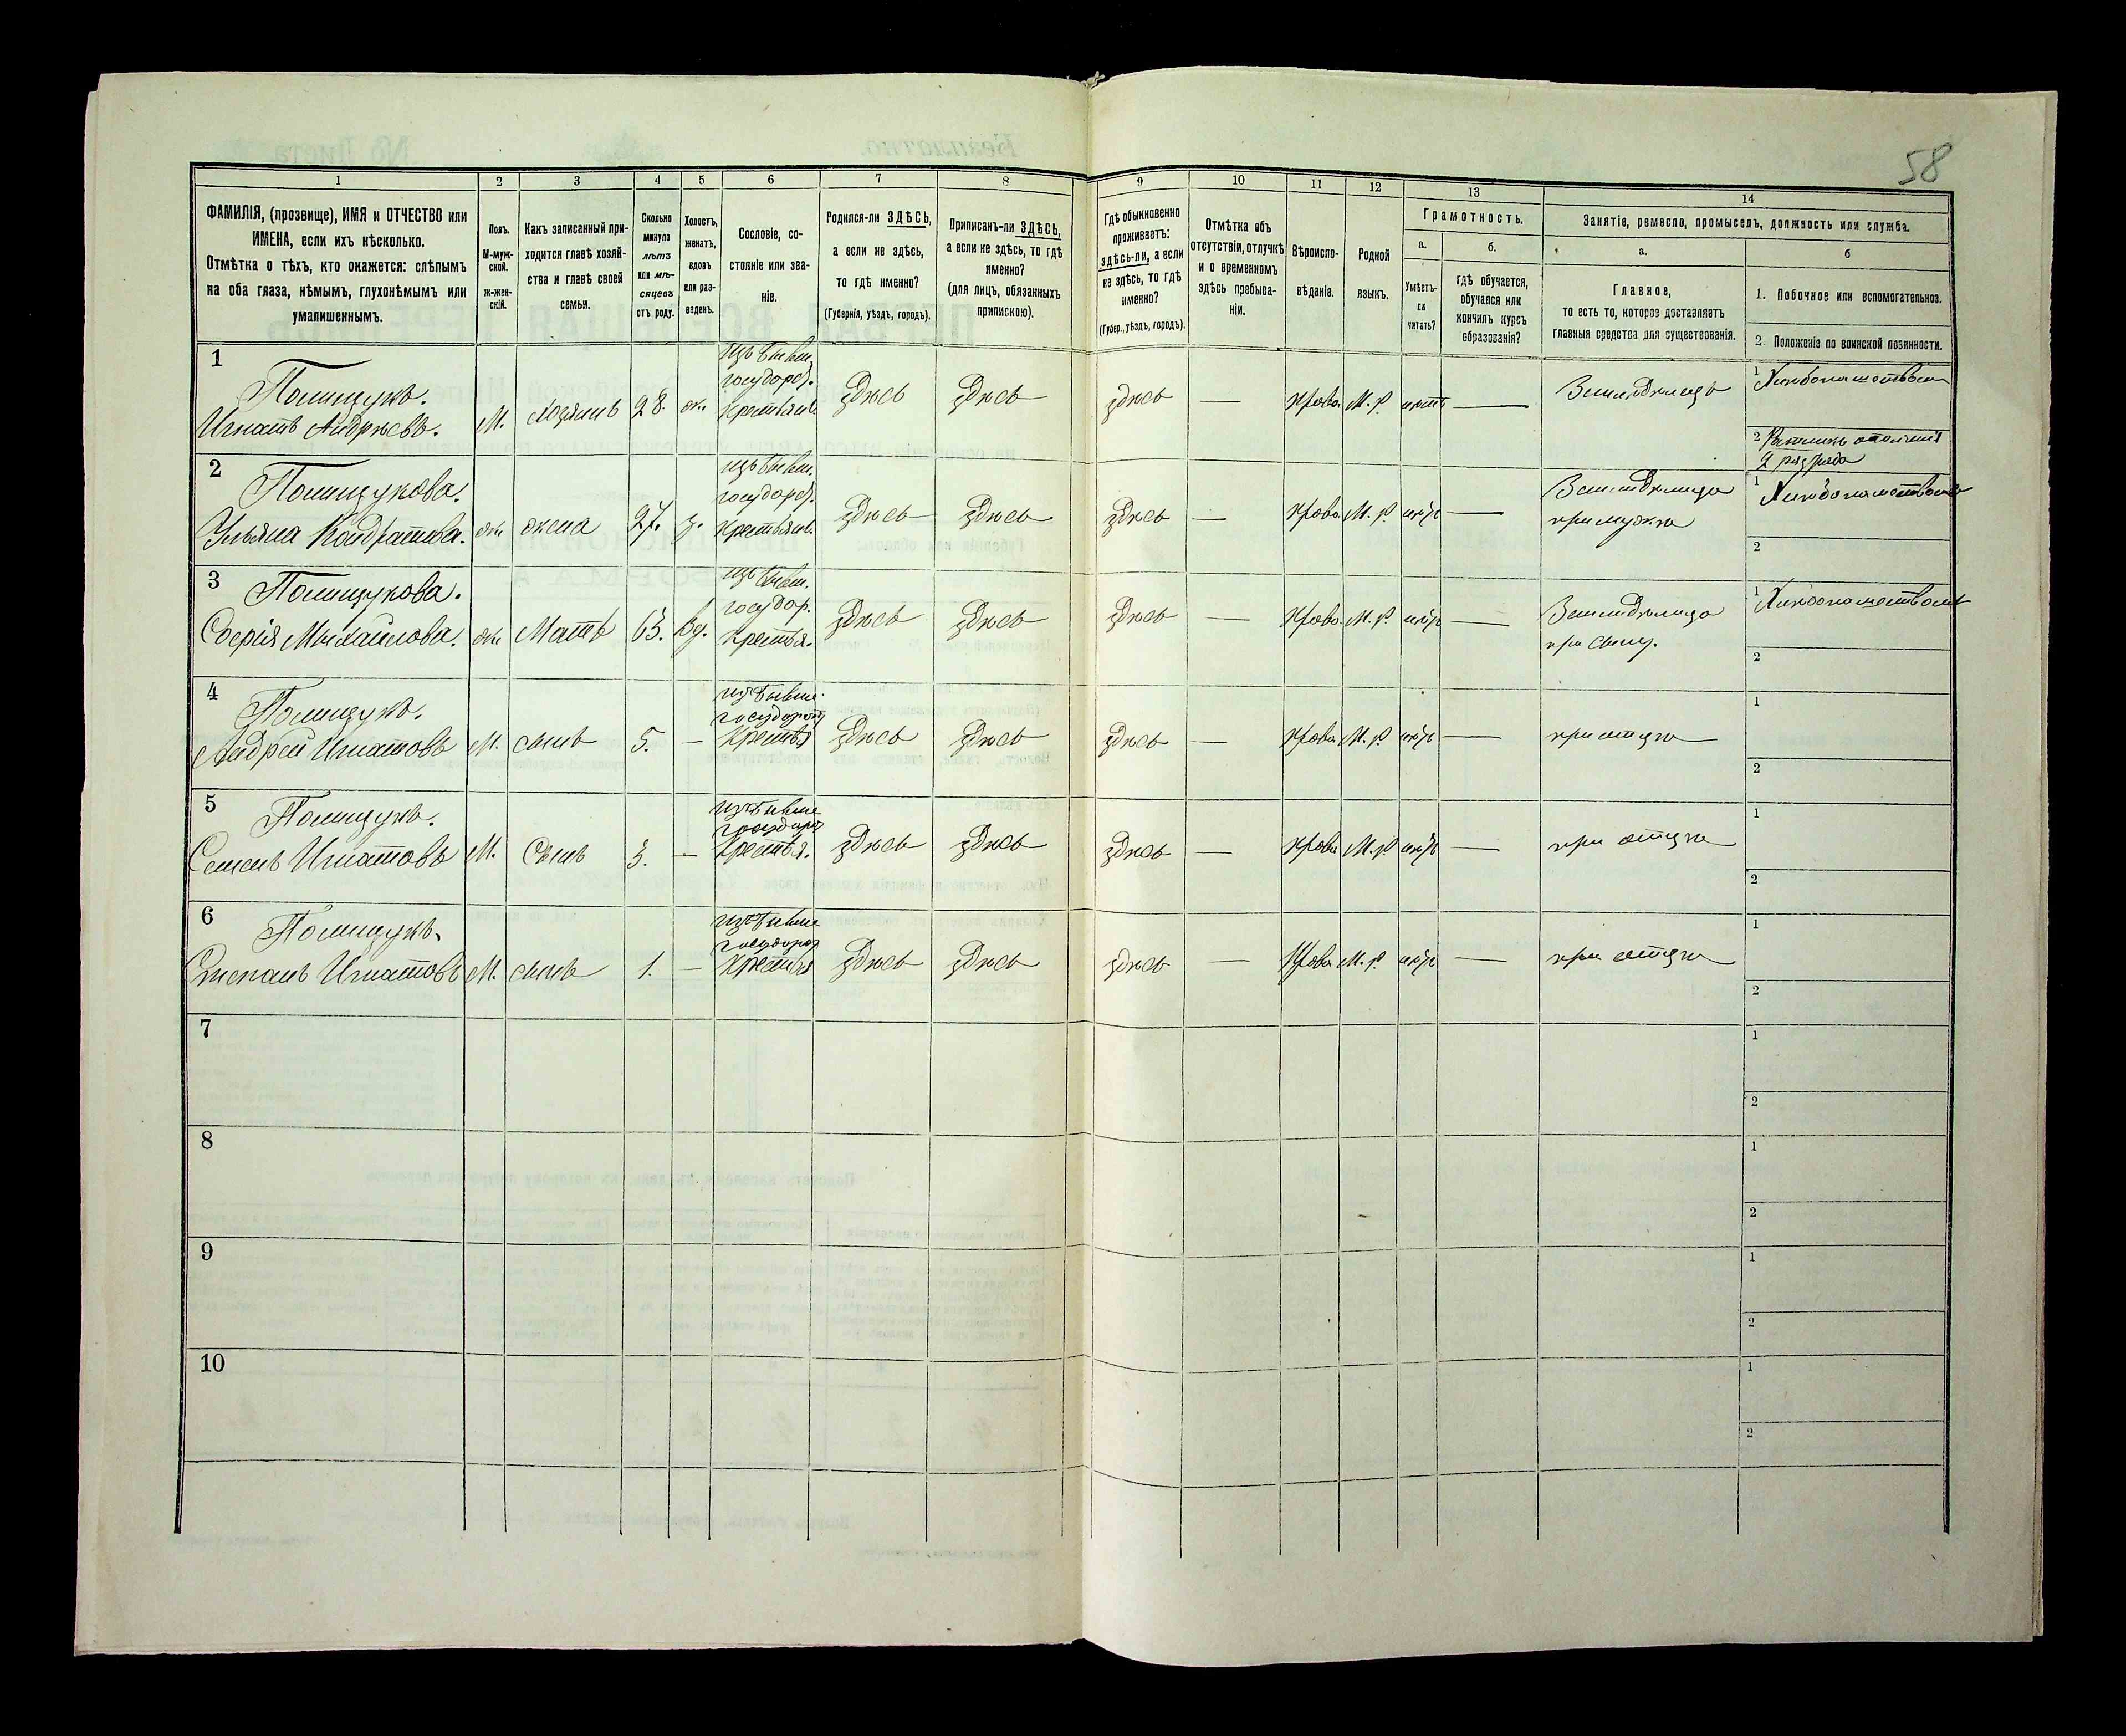 58
1 2 3 4 5 6 7 8 9 10 11 12 13 14
ФАМИЛІЯ, (прозвище), ИМЯ и ОТЧЕСТВО или
ИМЕНА, если ихъ нѣсколько.
Отмѣтка о тѣхъ, кто окажется: слѣпымъ
на оба глаза, нѣмымъ, глухонѣмымъ или
умалишеннымъ.
Полъ.
М-муж-
ской.
Ж-жен-
скій.
Какъ записанный при-
ходится главѣ хозяй-
ства и главѣ своей
семьи.
Сколько
минуло
лѣтъ
или мѣ-
сяцевъ
отъ роду.
Холостъ,
женатъ,
вдовъ
или раз-
веденъ.
Сословіе, со-
стояніе или зва-
ніе.
Родился-ли ЗДѢСЬ,
а если не здѣсь,
то гдѣ именно?
(Губернія, уѣздъ, городъ).
Приписанъ-ли ЗДѢСЬ,
а если не здѣсь, то гдѣ
именно?
(для лицъ, обязанныхъ
припискою).
Гдѣ обыкновенно
проживаетъ:
здѣсь-ли, а если
не здѣсь, то гдѣ
именно?
(Губер., уѣздъ, городъ).
Отмѣтка объ
отсутствіи, отлучкѣ
и о временномъ
здѣсь пребыва-
ніи.
Вѣроиспо-
вѣданіе.
Родной
языкъ.
Грамотность.
а.
Умѣетъ-
ли
читать?
б.
гдѣ обучается,
обучался или
кончилъ курсъ
образованія?
Занятіе, ремесло, промыселъ, должность или служба.
а.
Главное,
то есть то, которое доставляетъ
главныя средства для существованія.
б
1. Побочное или вспомогательное.
2. Положеніе по воинской повинности.
1
Полищукъ.
Игнатъ Андрѣевъ.
М. хозяинъ 28. ж.
изъ бывш.
государст.
крестьянъ
здѣсь здѣсь здѣсь — Права М. р. нѣтъ —
Земледѣлецъ
1 Хлѣбопашествомъ
2 Ратникъ ополченія
2 разряда
2
Полищукова.
Ульяна Кондратова.
жен жена 27. з.
изъ бывш.
государст.
крестьянъ
здѣсь здѣсь здѣсь — Права М. р. нѣтъ —
Земледѣлица
при мужѣ
1 Хлѣбопашествомъ
2
3
Полищукова.
Софія Михайлова.
жен Мать 63. вд.
изъ бывш.
государ.
крестья.
здѣсь здѣсь здѣсь — Права М. р. нѣтъ —
Земледѣлица
при сыну.
1 Хлѣбопашествомъ
2
4
Полищукъ.
Андрей Игнатовъ
М. сынъ 5. —
изъ бывше.
государст
крестья
здѣсь здѣсь здѣсь — Права М. р. нѣтъ —
при отцѣ
1
2
5
Полищукъ.
Семенъ Игнатовъ
М. Сынъ 3. —
изъ бывше
государст
крестья.
здѣсь здѣсь здѣсь — Права М. р. нѣтъ —
при отцѣ
1
2
6
Полищукъ.
Степанъ Игнатовъ
М. сынъ 1. —
изъ бывше
государст
крестья
здѣсь здѣсь здѣсь — Права М. р. нѣтъ —
при отцѣ
1
2
7
1
2
8
1
2
9
1
2
10
1
2